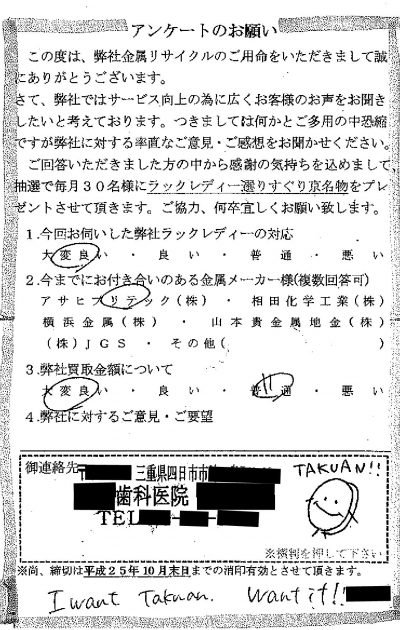 アンケートのお願い
この度は、弊社金属リサイクルのご用命をいただきまして誠
にありがとうございます。
さて、弊社ではサービス向上の為に広くお客様のお声をお聞き
したいと考えております。つきましては何かとご多用の中恐縮
ですが弊社に対する率直なご意見・ご感想をお聞かせください。
ご回答いただきました方の中から感謝の気持ちを込めまして、
抽選で毎月30名様にラックレディー選りすぐり京名物をプレ
ゼントさせて頂きます。ご協力、何卒宜しくお願い致します。
1.今回お伺いした弊社ラックレディーの対応
大変良い・良い・普通・悪い
2.今までにお付き合いのある金属メーカー様(複数回答可)
アサヒプリテック(株)・相田化学工業(株)
横浜金属(株)・山本貴金属地金(株)
(株)JGS・その他( )
3.弊社買取金額について
大変良い・良い・普通・悪い
4.弊社に対するご意見・ご要望
御連絡先
〒 三重県四日市市
歯科医院
TEL - -
TAKUAN!!
※横判を押して下さい
※尚、締切は平成25年10月末日までの消印有効とさせて頂きます。
I want Takuan. Want it!!